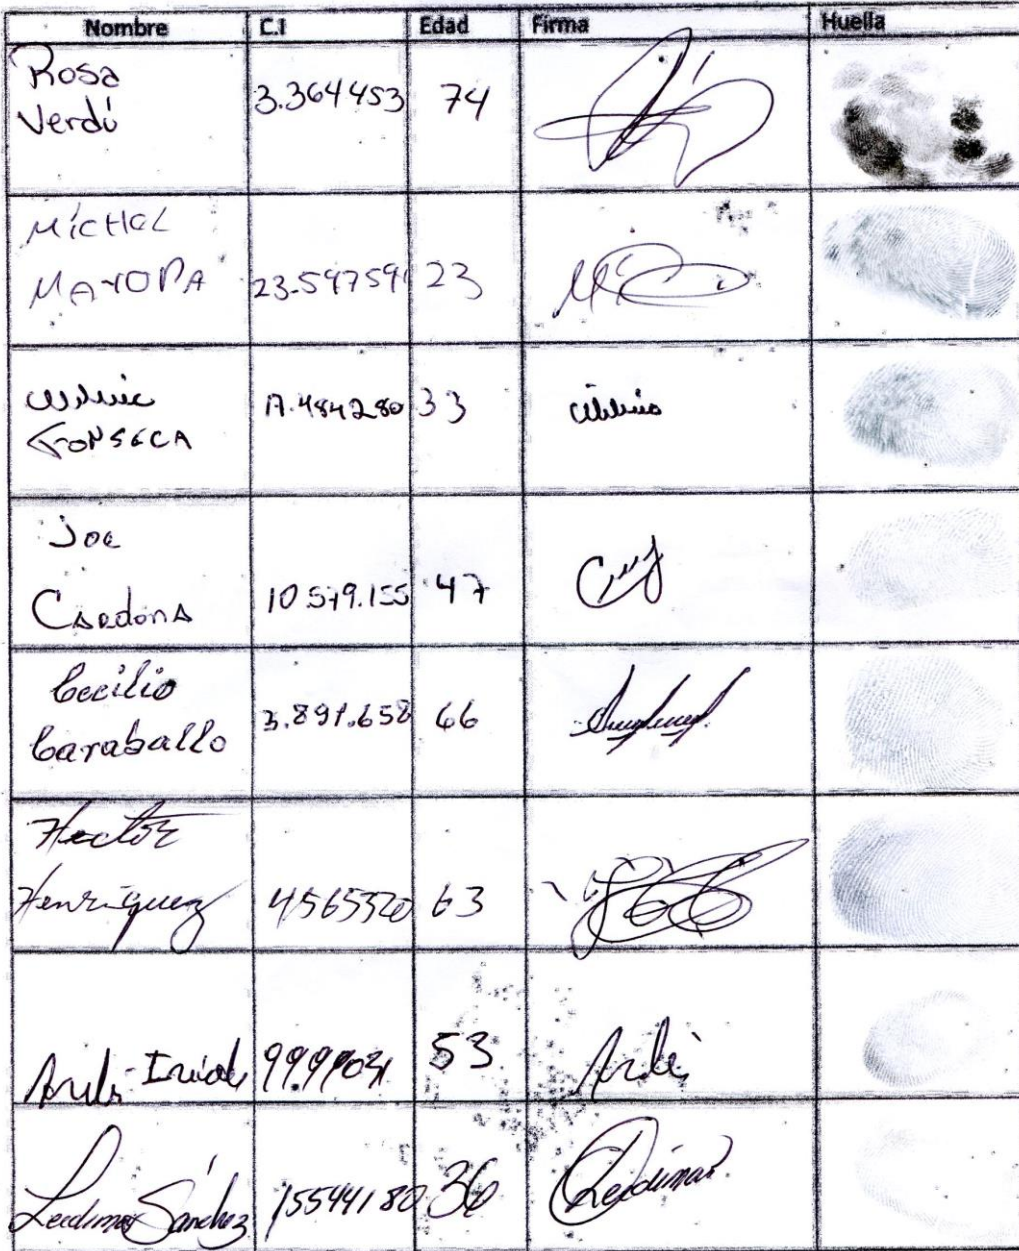 Nombre C.I Edad Firma Huella
Rosa
Verdú
3.364453 74
Míchel
MAYORA
23.597591 23
FONSECA
17.484280 33
Joe
Cardona
10.579.155 47
Cecilio
Caraballo
3.891.658 66
Hector
Henriquez
4565520 63
53
Leedimar Sánchez 15544180 36
Leedimar